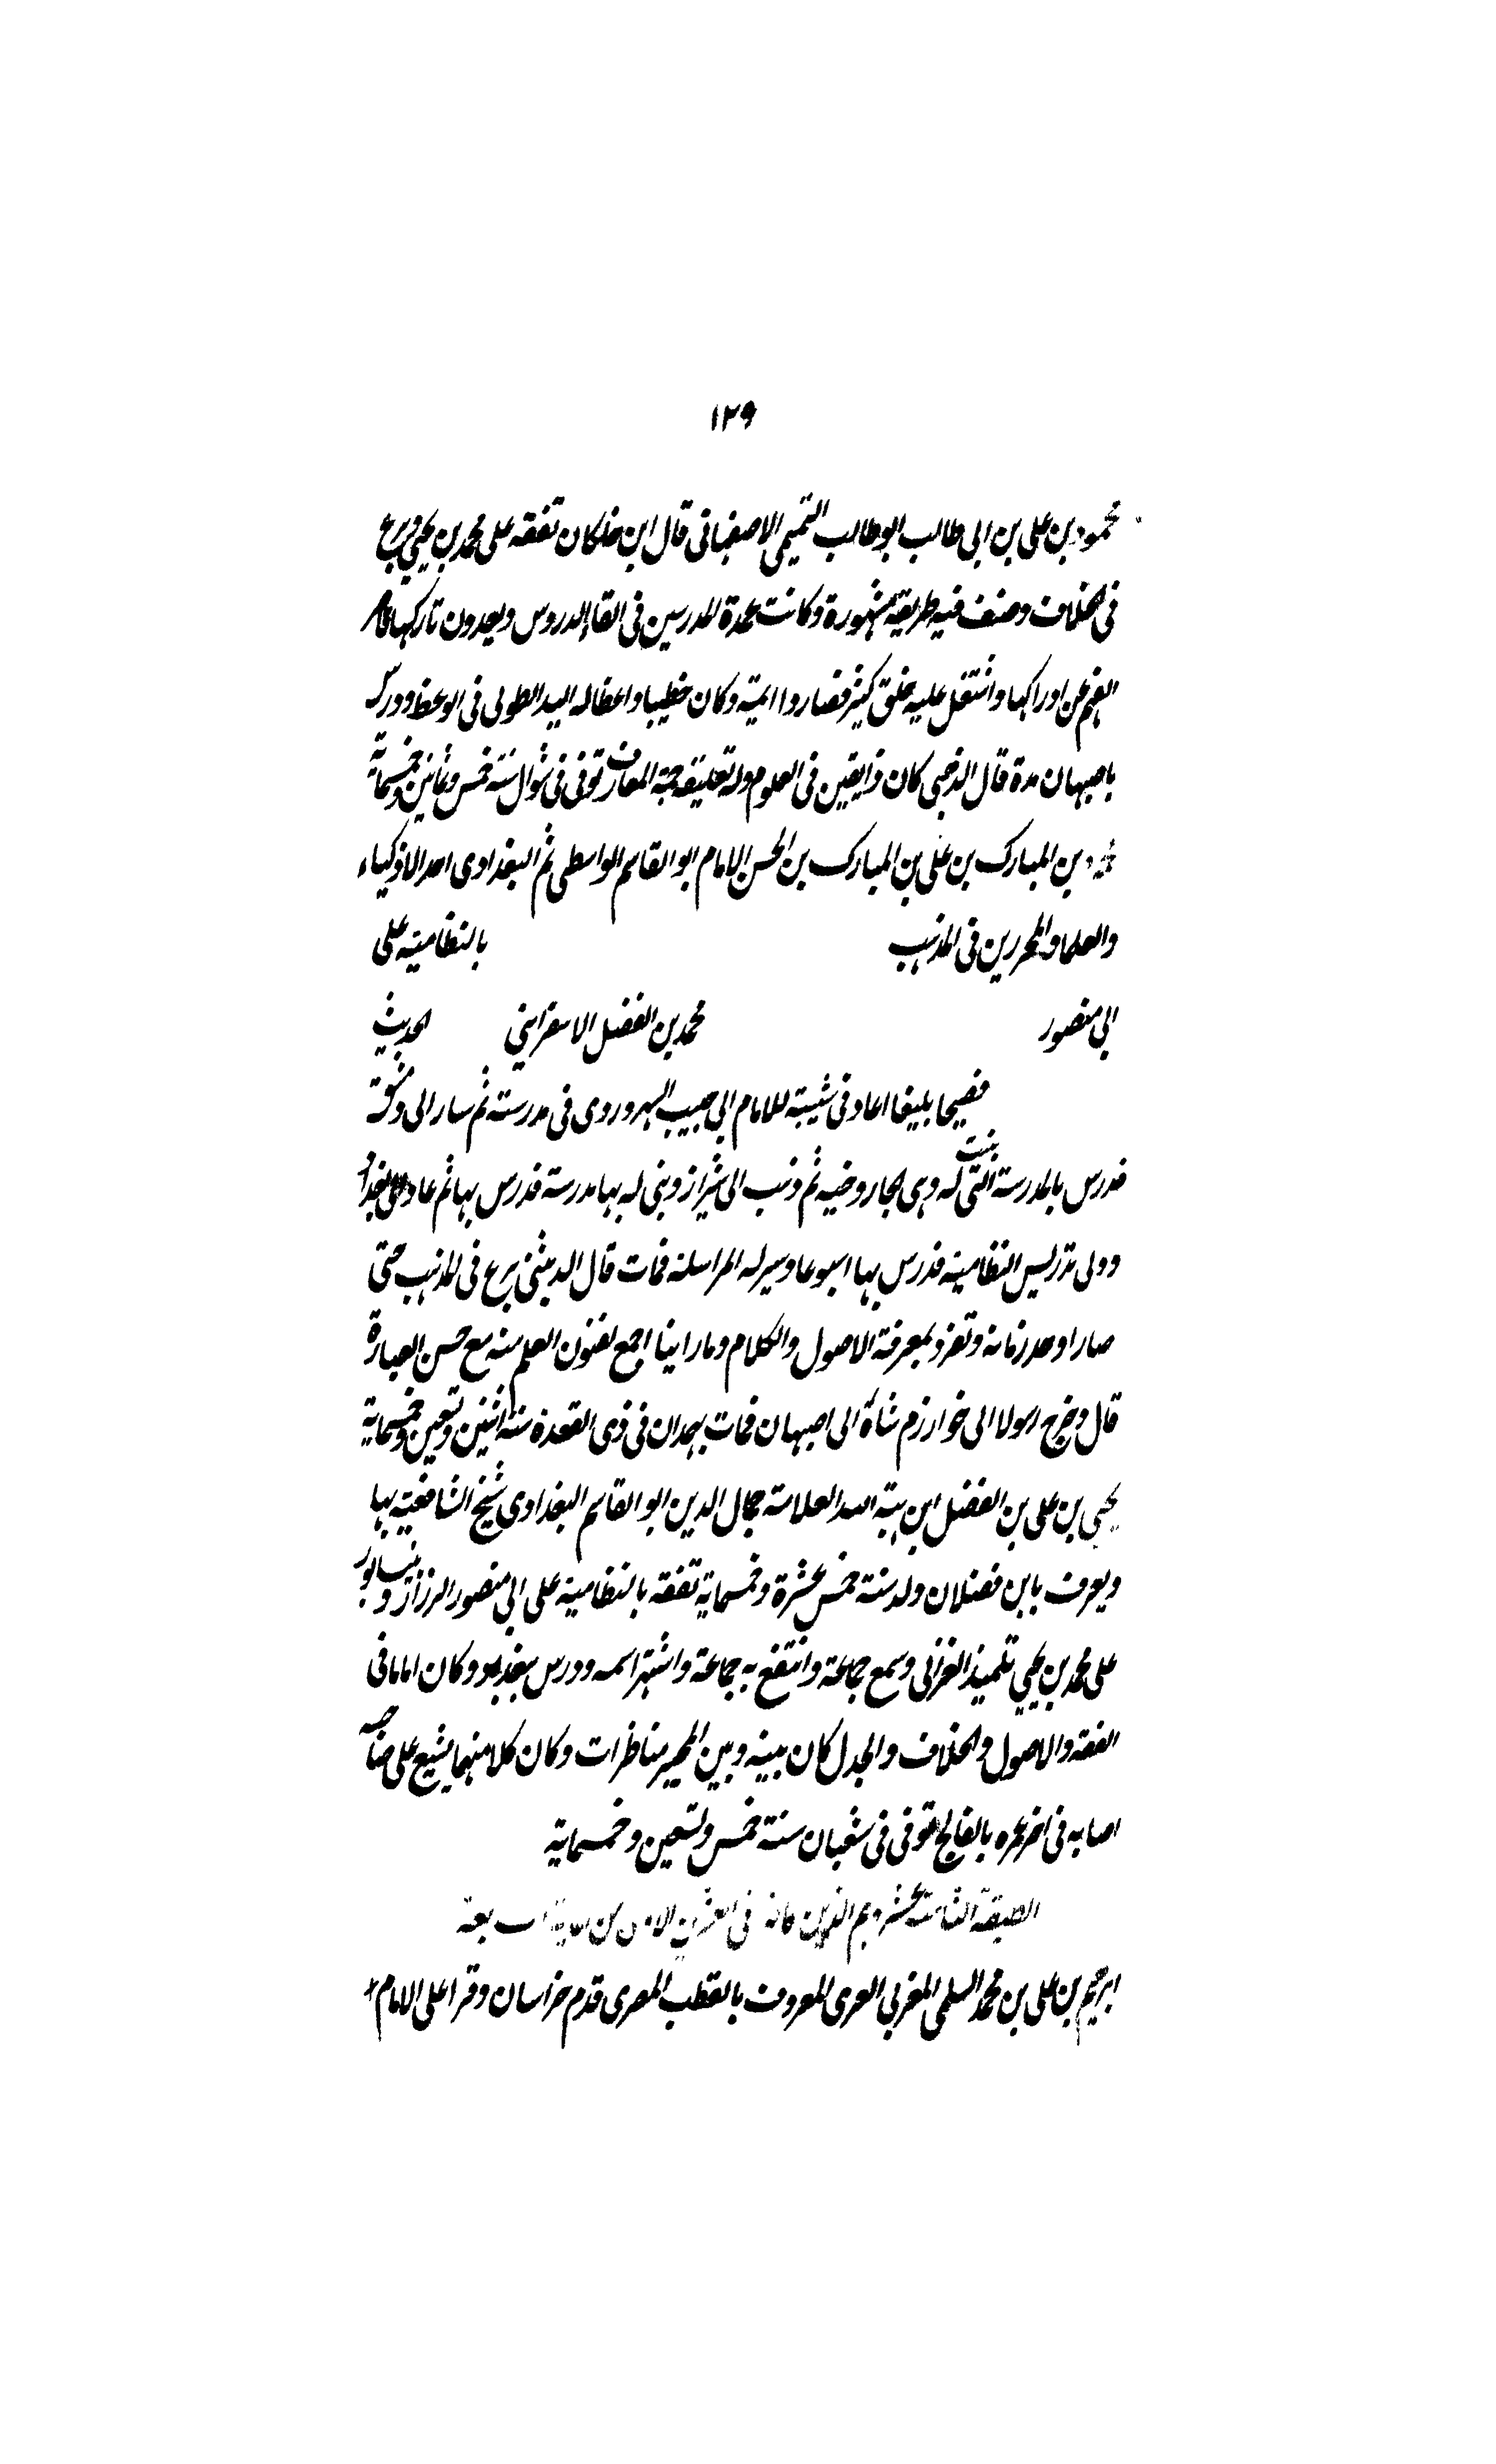 ١٢٩
محمود بن على بن ابى طالب ابو طالب التميمى الاصفهانى قال ابن خلكان تفقه على محمد بن يحيى وبرع
فى الخلاف وصنف فيه طريقة مشهورة وكانت عمدة المدرسين فى القاء الدروس ويعدون تاركها
الفهم عن ادراكها واشتغل عليه خلق كثير فصاروا ائمة وكان خطيبا واعظا له اليد الطولى فى الوعظ ودرس
باصبهان مدة قال الذهبى كان ذا يقين فى العلوم وله تعليقة جمة المعارف توفى فى شوال سنة خمس وثمانين وخمسماية
بن المبارك بن على بن المبارك بن الحسن الامام ابو القاسم الواسطى ثم البغدادى احد الاذكياء
والعلما والمحررين فى المذهب بالنظامية على
ابى منصور محمد بن الفضل الاسفراينى الحديث
فصيحا بليغا اعاد فى شبيبته للامام ابى نجيب السهروردى فى مدرسته ثم سار الى دمشق
فدرس بالمدرسة التى بنيت له وهى الجاروخيه ثم ذهب الى شيراز وبنى له بها مدرسة فدرس بها ثم عاد الى بغداد
وولى تدريس النظامية فدرس بها اسبوعا وسير له المراسلة فمات قال الدبيثى برع فى المذهب حتى
صار اوحد زمانه وتفرد بمعرفة الاصول والكلام وما راينا اجمع لفنون العلم منه مع حسن العبارة
قال وخرج رسولا الى خوارزم شاه الى اصبهان فمات بهمدان فى ذى القعدة سنة اثنين وتسعين وخمسماية
يحيى بن على بن الفضل ابن هبة الله العلامة جمال الدين ابو القاسم البغدادى شيخ الشافعية بها
ويعرف بابن فضلان ولد سنة خمس عشرة وخمسماية تفقه بالنظامية على ابى منصور الرزاز وبنيسابور
على محمد بن يحيى تلميذ الغزالى وسمع جماعة وانتفع به جماعة واشتهر اسمه ودرس ببغداد وكان اماما فى
الفقه والاصول والخلاف والجدل كان بينه وبين المجير مناظرات وكان كلا منهما يشنع على صاحبه
اصابه فى اخر عمره بالفالج توفى فى شعبان سنة خمس وتسعين وخمسماية
الطبقة الثامنة عشر وهم الذين كانوا فى العشرين الاولى من الماية السابعة
ابرهيم بن على بن محمد السلمى المغربى المعروف بالقطب المصرى قدم خراسان وقرا على الامام